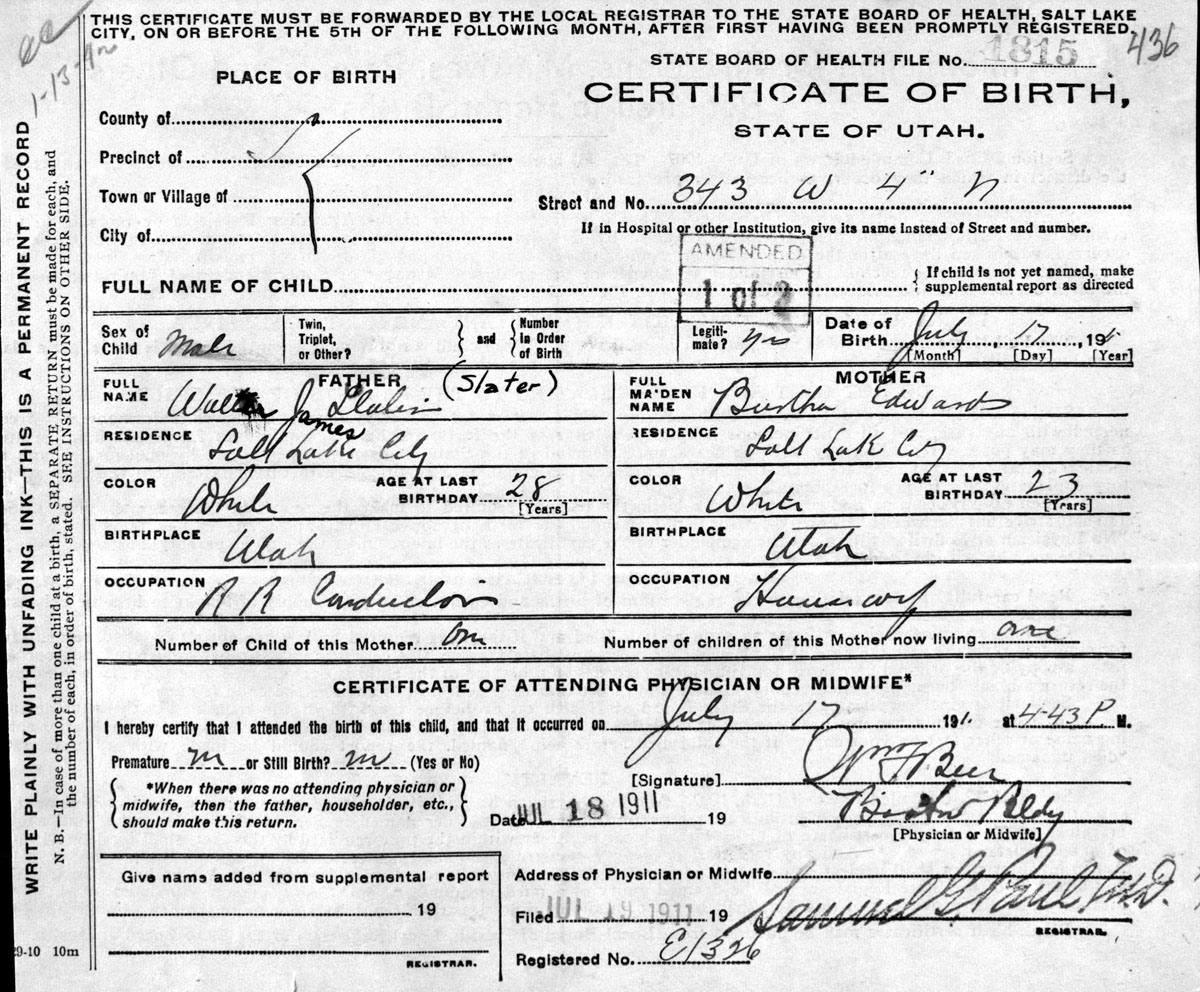 THIS CERTIFICATE MUST BE FORWARDED BY THE LOCAL REGISTRAR TO THE STATE BOARD OF HEALTH, SALT LAKE
CITY, ON OR BEFORE THE 5TH OF THE FOLLOWING MONTH, AFTER FIRST HAVING BEEN PROMPTLY REGISTERED.
436
1-13-
STATE BOARD OF HEALTH FILE No. 1815
PLACE OF BIRTH
CERTIFICATE OF BIRTH,
STATE OF UTAH.
County of
Precinct of
Town or Village of
City of
Street and No. 343 W 4" N
If in Hospital or other Institution, give its name instead of Street and number.
AMENDED
1 of 2
FULL NAME OF CHILD
{ If child is not yet named, make
supplemental report as directed
Sex of Child Male
Twin, Triplet, or Other? } and { Number in Order of Birth
Legiti-mate? yes
Date of Birth July 17 191
[Month] [Day] [Year]
FATHER
FULL NAME Walter James (Slater)
RESIDENCE Salt Lake City
COLOR White
AGE AT LAST BIRTHDAY 28
[Years]
BIRTHPLACE Utah
OCCUPATION R R Conductor
MOTHER
FULL MAIDEN NAME Bertha Edwards
RESIDENCE Salt Lake City
COLOR White
AGE AT LAST BIRTHDAY 23
[Years]
BIRTHPLACE Utah
OCCUPATION Housewf
Number of Child of this Mother One
Number of children of this Mother now living one
CERTIFICATE OF ATTENDING PHYSICIAN OR MIDWIFE*
I hereby certify that I attended the birth of this child, and that it occurred on July 17 191 1. at 4-43 P M.
Premature or Still Birth? (Yes or No)
[Signature] Wm F Beer
{ *When there was no attending physician or
midwife, then the father, householder, etc.,
should make this return. }
Date JUL 18 1911 19
[Physician or Midwife]
Give name added from supplemental report
19
REGISTRAR.
Address of Physician or Midwife
Filed JUL 19 1911 19 Samuel G. Paul M.D.
REGISTRAR.
Registered No. E1326
29-10 10m
WRITE PLAINLY WITH UNFADING INK—THIS IS A PERMANENT RECORD
N. B.—In case of more than one child at a birth, a SEPARATE RETURN must be made for each, and
the number of each, in order of birth, stated. SEE INSTRUCTIONS ON OTHER SIDE.